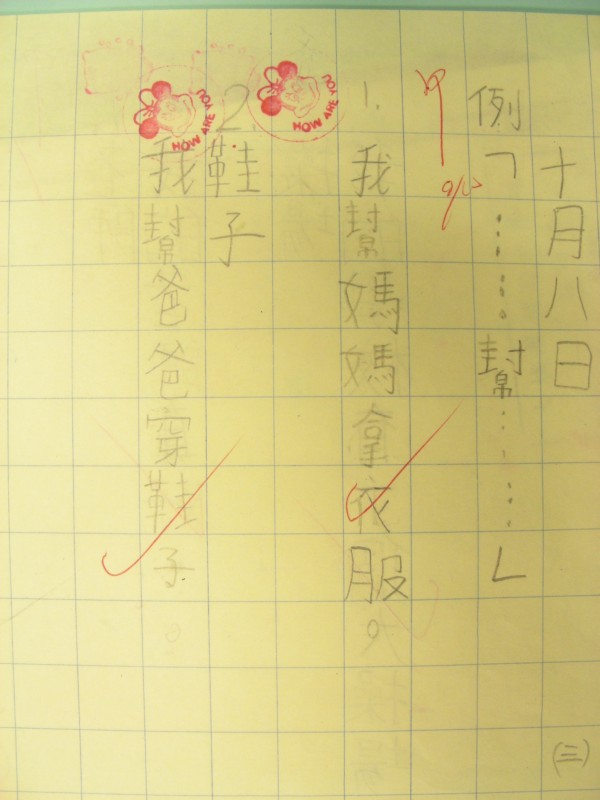 十月八日 (三)
例「……幫……」
1. 我幫媽媽拿衣服。
2. 鞋子
我幫爸爸穿鞋子。
HOW ARE YOU
HOW ARE YOU